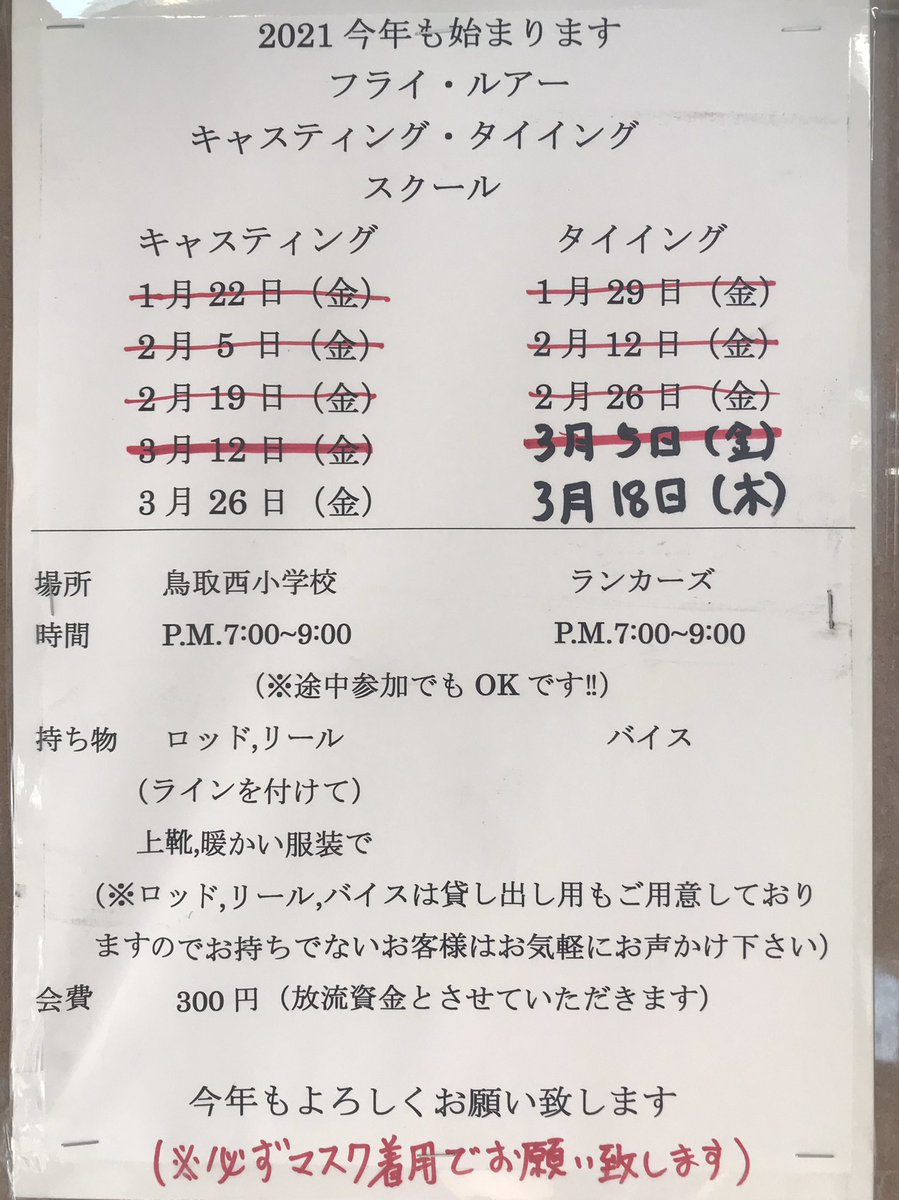 2021 今年も始まります
フライ・ルアー
キャスティング・タイイング
スクール
キャスティング タイイング
1月 22日（金） 1月 29日（金）
2月 5日（金） 2月 12日（金）
2月 19日（金） 2月 26日（金）
3月 12日（金） 3月5日（金）
3月 26日（金） 3月18日（木）
場所 鳥取西小学校 ランカーズ
時間 P.M.7:00~9:00 P.M.7:00~9:00
（※途中参加でも OK です!!）
持ち物 ロッド,リール バイス
（ラインを付けて）
上靴,暖かい服装で
（※ロッド,リール,バイスは貸し出し用もご用意しており
ますのでお持ちでないお客様はお気軽にお声かけ下さい）
会費 300 円（放流資金とさせていただきます）
今年もよろしくお願い致します
（※必ずマスク着用でお願い致します）